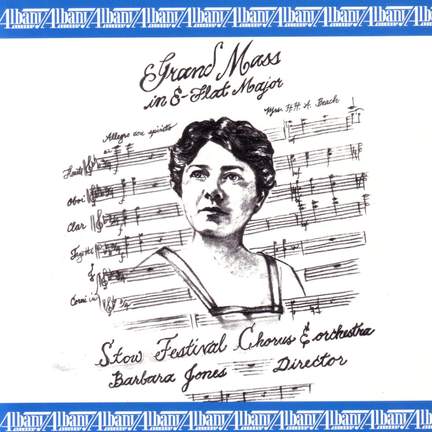 Albany Albany Albany Albany Albany Albany Albany Albany
Grand Mass
in E-Flat Major
Mrs. H.H.A. Beach
Allegro con spirito
Flauti
Oboi
Clar
Fagotti
Corni in
Stow Festival Chorus & orchestra
Barbara Jones Director
Albany Albany Albany Albany Albany Albany Albany Albany